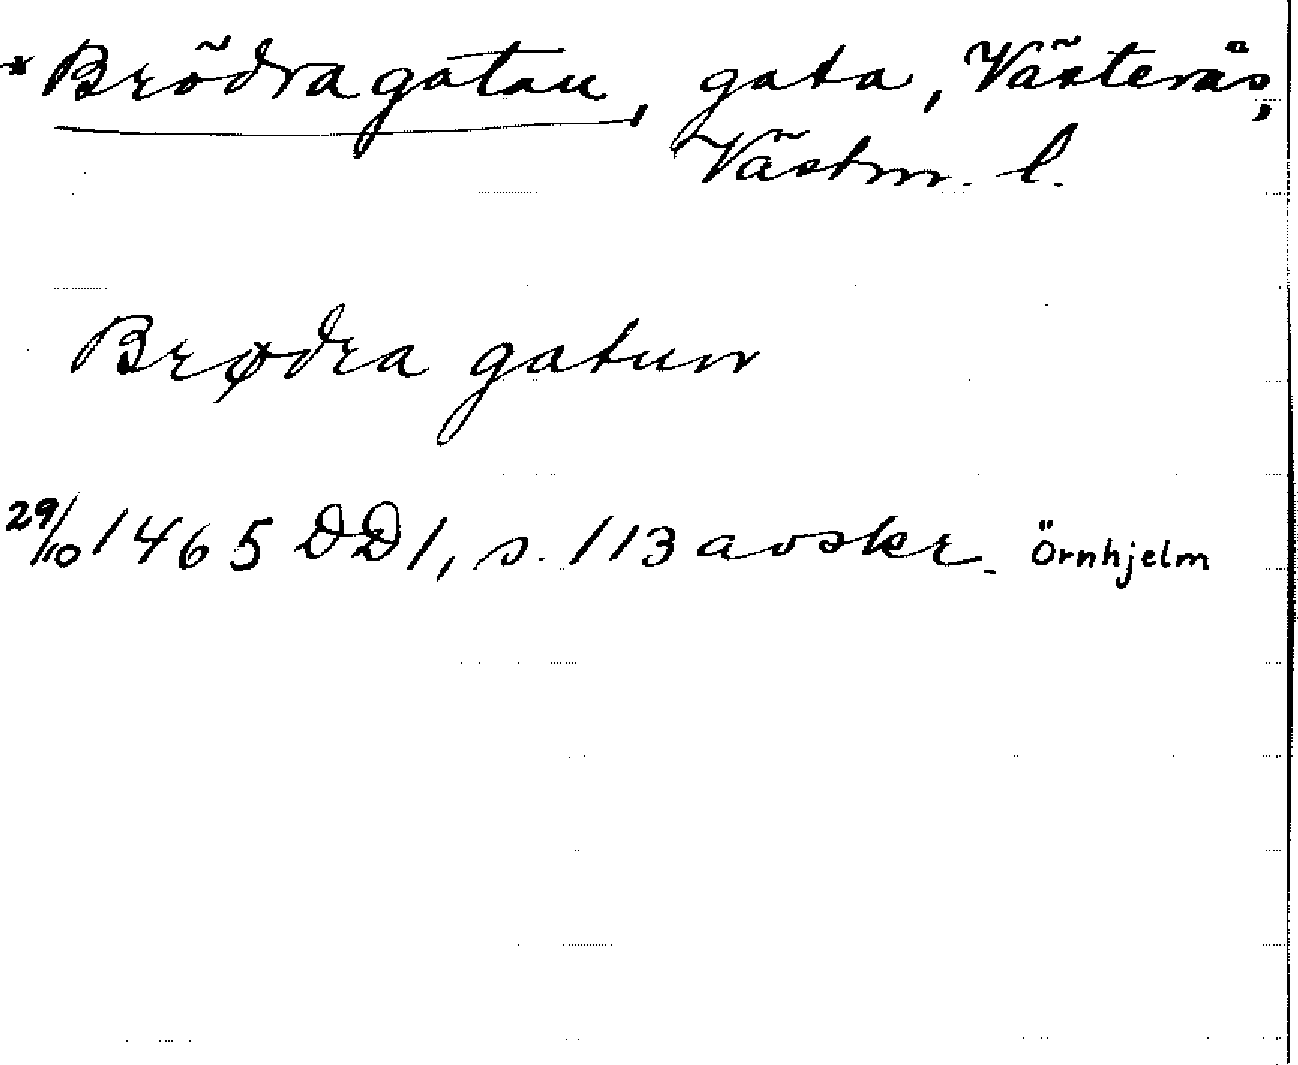 *Brödragatan, gata, Västerås,
Västm. l.
Brødra gatun
29/10 1465 DD1, s. 113 avskr. Örnhjelm